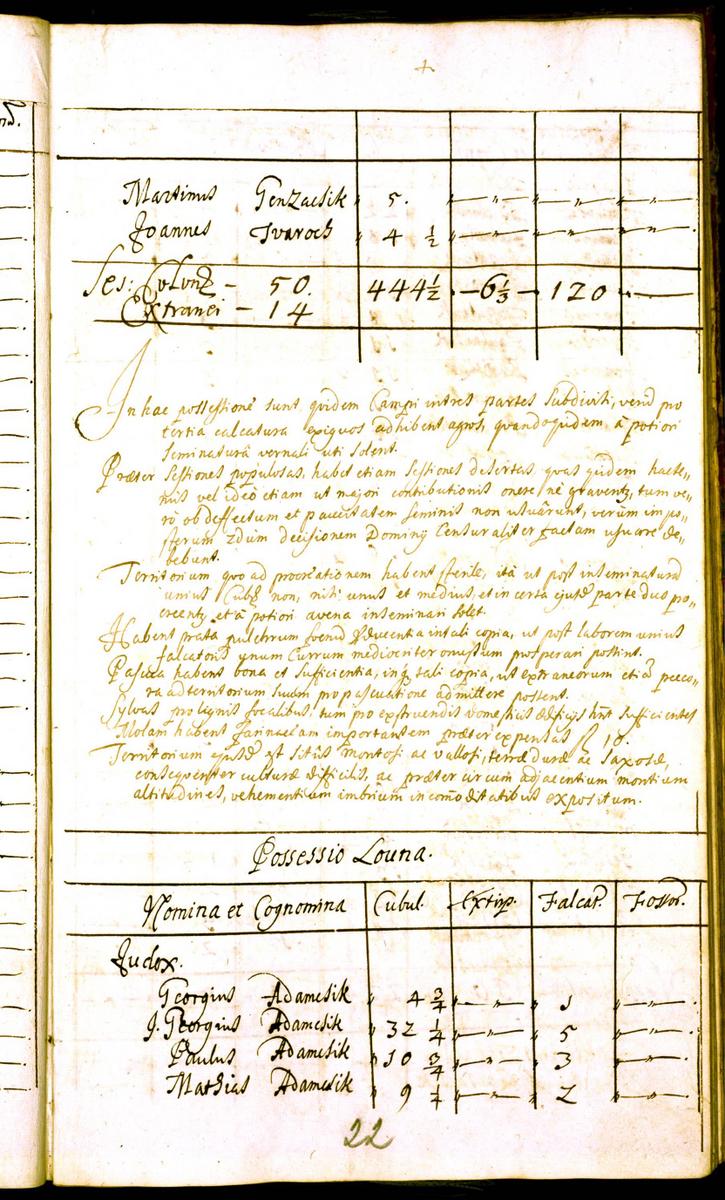 Martinus Genzacsik 5. " " "
Joannes Tvaroch 4 1/2 " " "
Ses: Colonq - 50. 444 1/2 - 6 1/3 - 120 -
Extranei - 14
In hac possessione sunt quidem Campi in tres partes subdivisi, verū pro
tertia calcatura exiguos adhibent agros, quandoquidem à potiori
Seminaturâ vernali uti solent.
Præter Sessiones populosas, habet etiam Sessiones desertas, quas quidem hacte„
nus vel ideo etiam ut majori contributionis onere nè graventq, tum ve„
rò ob deffectum et paucitatem Seminis non usuârunt, verùm im po„
sterum decisionem Dominij Censuraliter factam usuare de„
bebunt.
Territorium quo ad procreationem habent sterile, ità ut post inseminaturā
unius Cubq non, nisi unus et medius, et in certa ejusd parte duo pro„
creentq, et à potiori avena inseminari solet.
Habent prata pulchrum foenū in tali copia, ut post laborem unius
falcatoris unum Currum mediocriter onustum prosperari possint.
Pascua habent bona et sufficientia, inq tali copia, ut extraneorum etiā peco„
ra ad territorium suum pro pascuatione admittere possent.
Sylvas pro lignis focalibus, tum pro exstruendis domesticis ædificijs hnt sufficientes
Molam habent farinaceam importantem præter expensas f 10.
Territorium ejusd est sitûs montosi ac vallosi, terræ duræ ac saxosæ,
consequenter culturæ difficilis, ac præter circum adjacentium montium
altitudines, vehementium imbrium incom̄oditatibus expositum.
Possessio Louna.
Nomina et Cognomina Cubul. Extirp. Falcat. Fossor.
Judex.
Georgius Adamcsik " 4 3/4 " " 1 "
J. Georgius Adamcsik " 32 1/4 " " 5 "
Paulus Adamcsik " 10 3/4 " " 3 "
Mathias Adamcsik " 9 1/4 " " 2 "
22